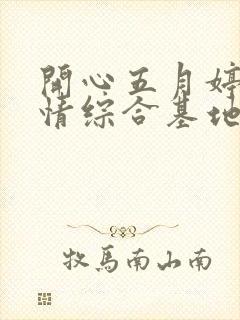 開心五月婷
情综合基地
牧馬南山南